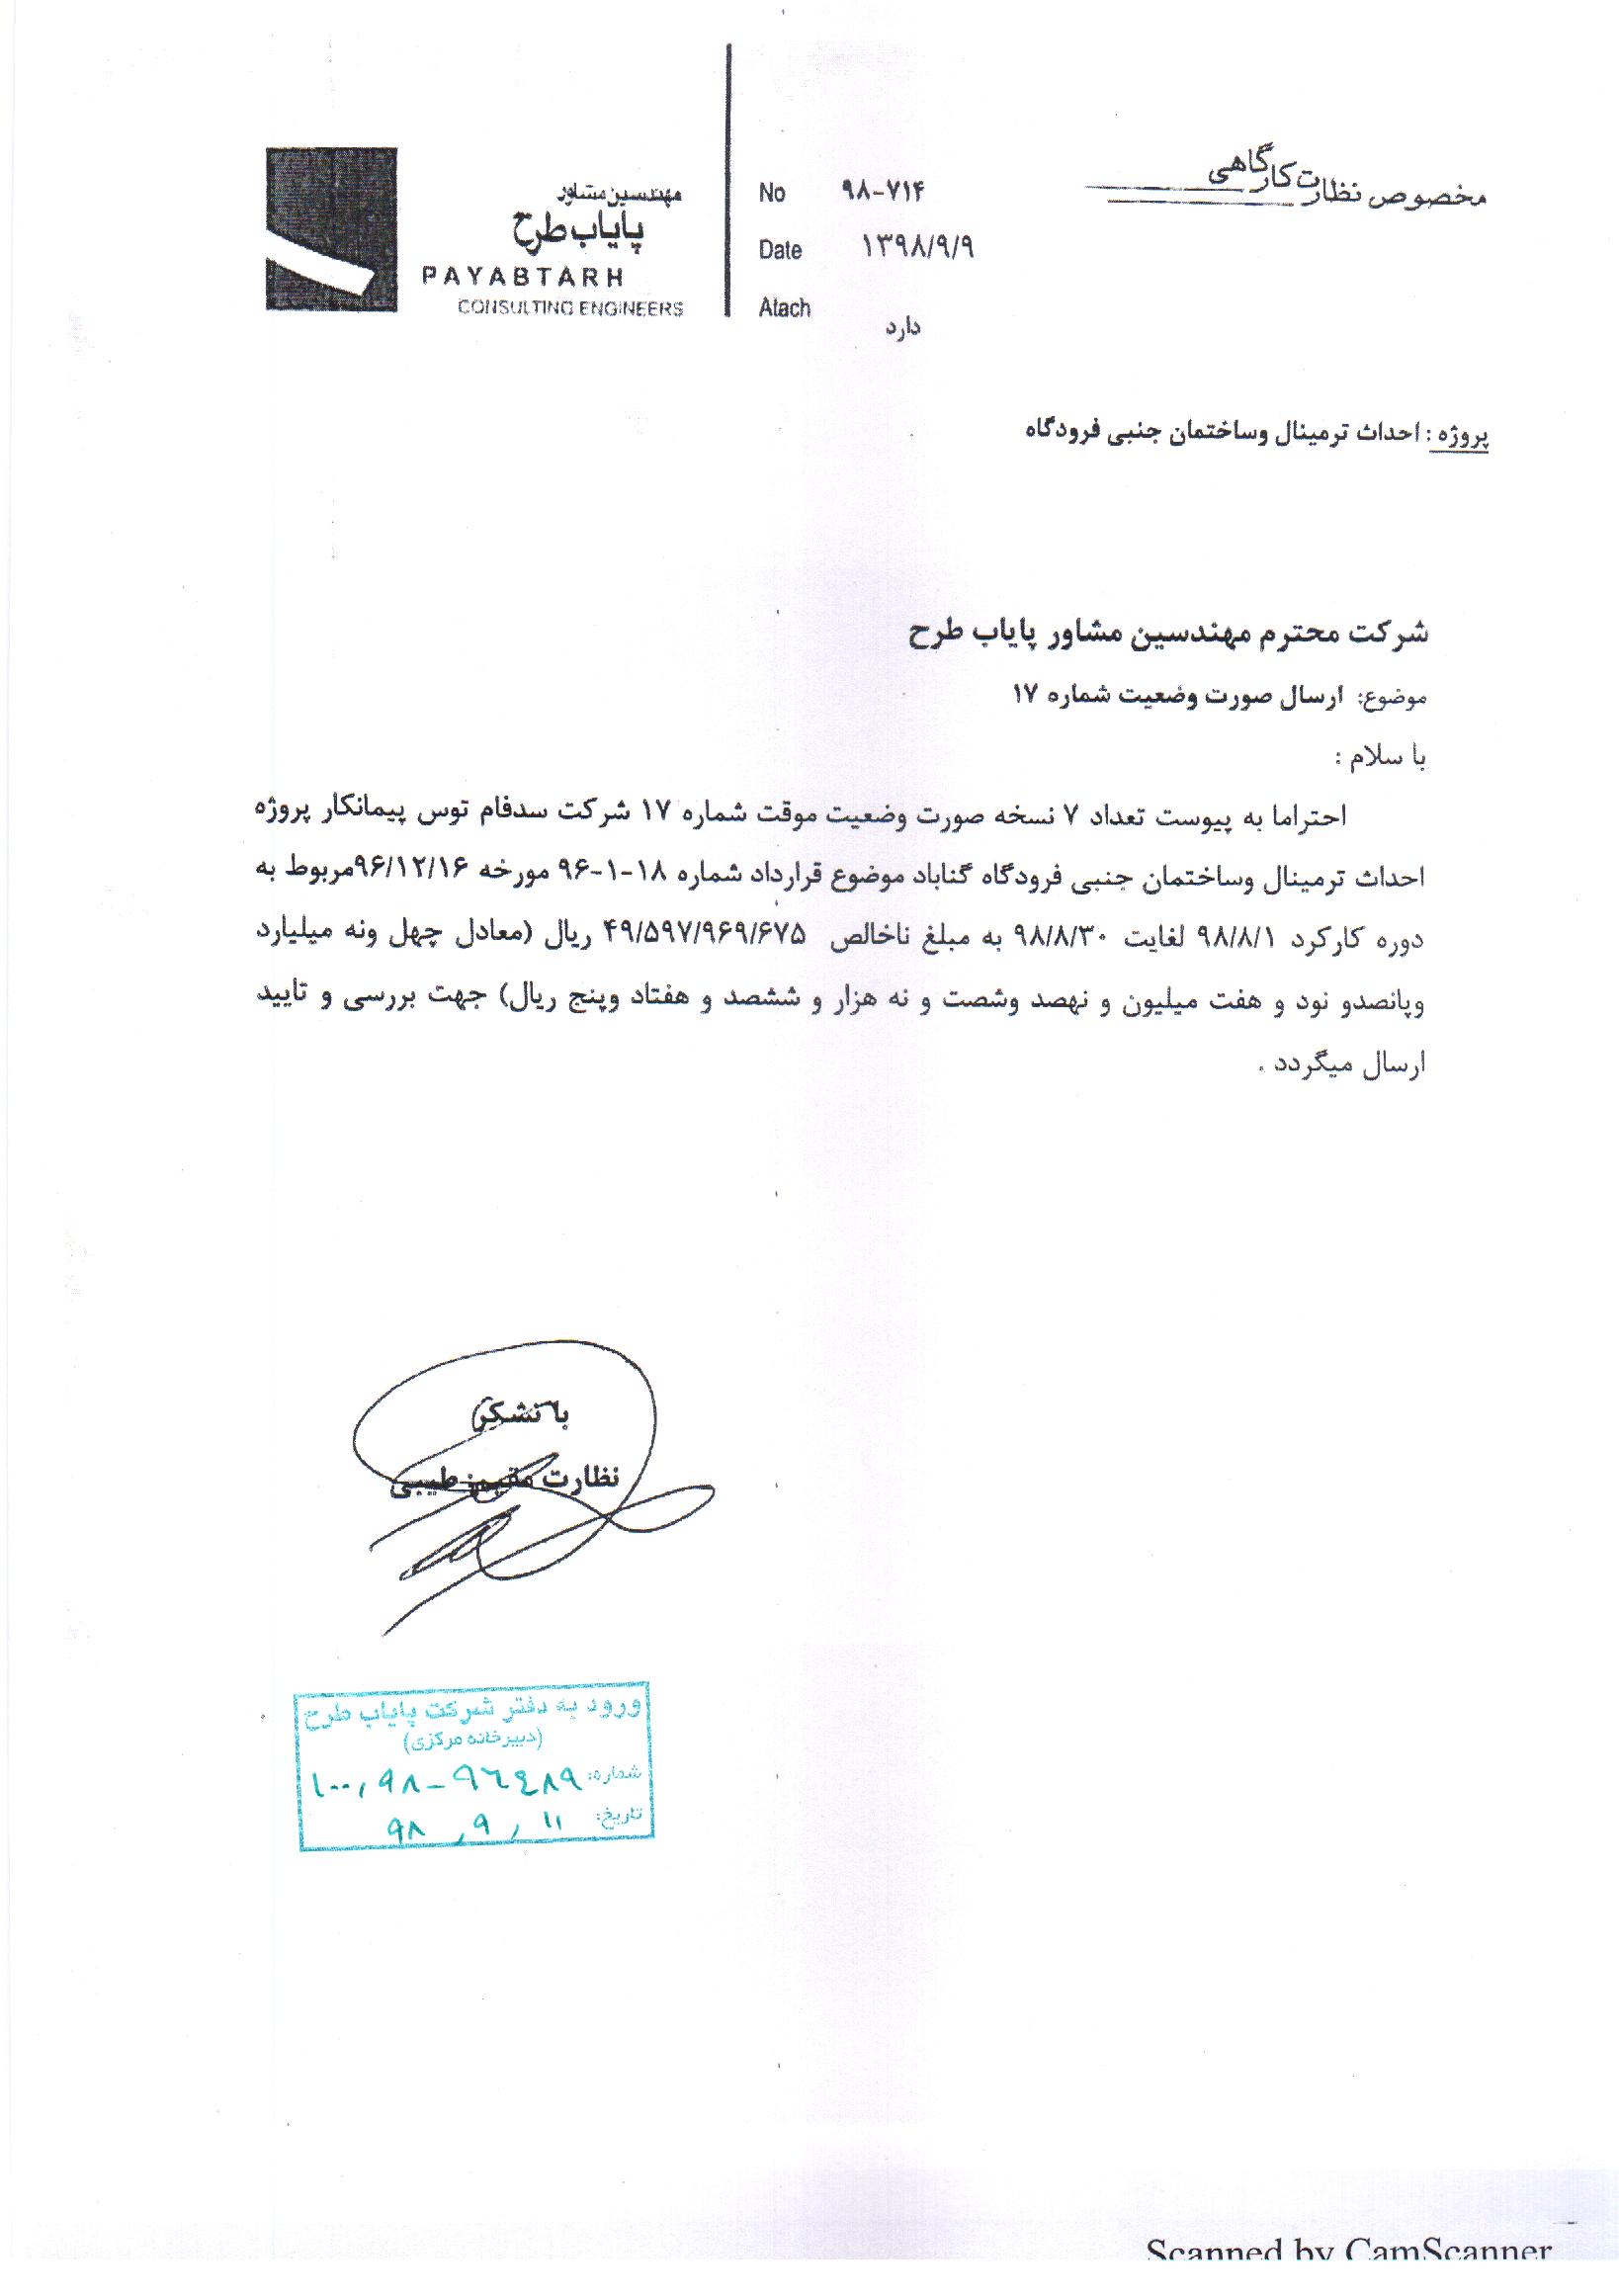 مخصوص نظارت کارگاهی
مهندسین مشاور
پایاب طرح
PAYABTARH
CONSULTING ENGINEERS
No ۹۸-۷۱۴
Date ۱۳۹۸/۹/۹
Atach دارد
پروژه : احداث ترمینال وساختمان جنبی فرودگاه
شرکت محترم مهندسین مشاور پایاب طرح
موضوع: ارسال صورت وضعیت شماره ۱۷
با سلام :
احتراما به پیوست تعداد ۷ نسخه صورت وضعیت موقت شماره ۱۷ شرکت سدفام توس پیمانکار پروژه
احداث ترمینال وساختمان جنبی فرودگاه گناباد موضوع قرارداد شماره ۱۸-۱-۹۶ مورخه ۹۶/۱۲/۱۶مربوط به
دوره کارکرد ۹۸/۸/۱ لغایت ۹۸/۸/۳۰ به مبلغ ناخالص ۴۹/۵۹۷/۹۶۹/۶۷۵ ریال (معادل چهل ونه میلیارد
وپانصدو نود و هفت میلیون و نهصد وشصت و نه هزار و ششصد و هفتاد وپنج ریال) جهت بررسی و تایید
ارسال میگردد .
با تشکر
نظارت مقیم: طیبی
ورود به دفتر شرکت پایاب طرح
(دبیرخانه مرکزی)
شماره: ۱۰۰,۹۸-۹۶۴۸۹
تاریخ: ۹۸,۹,۱۱
Scanned by CamScanner